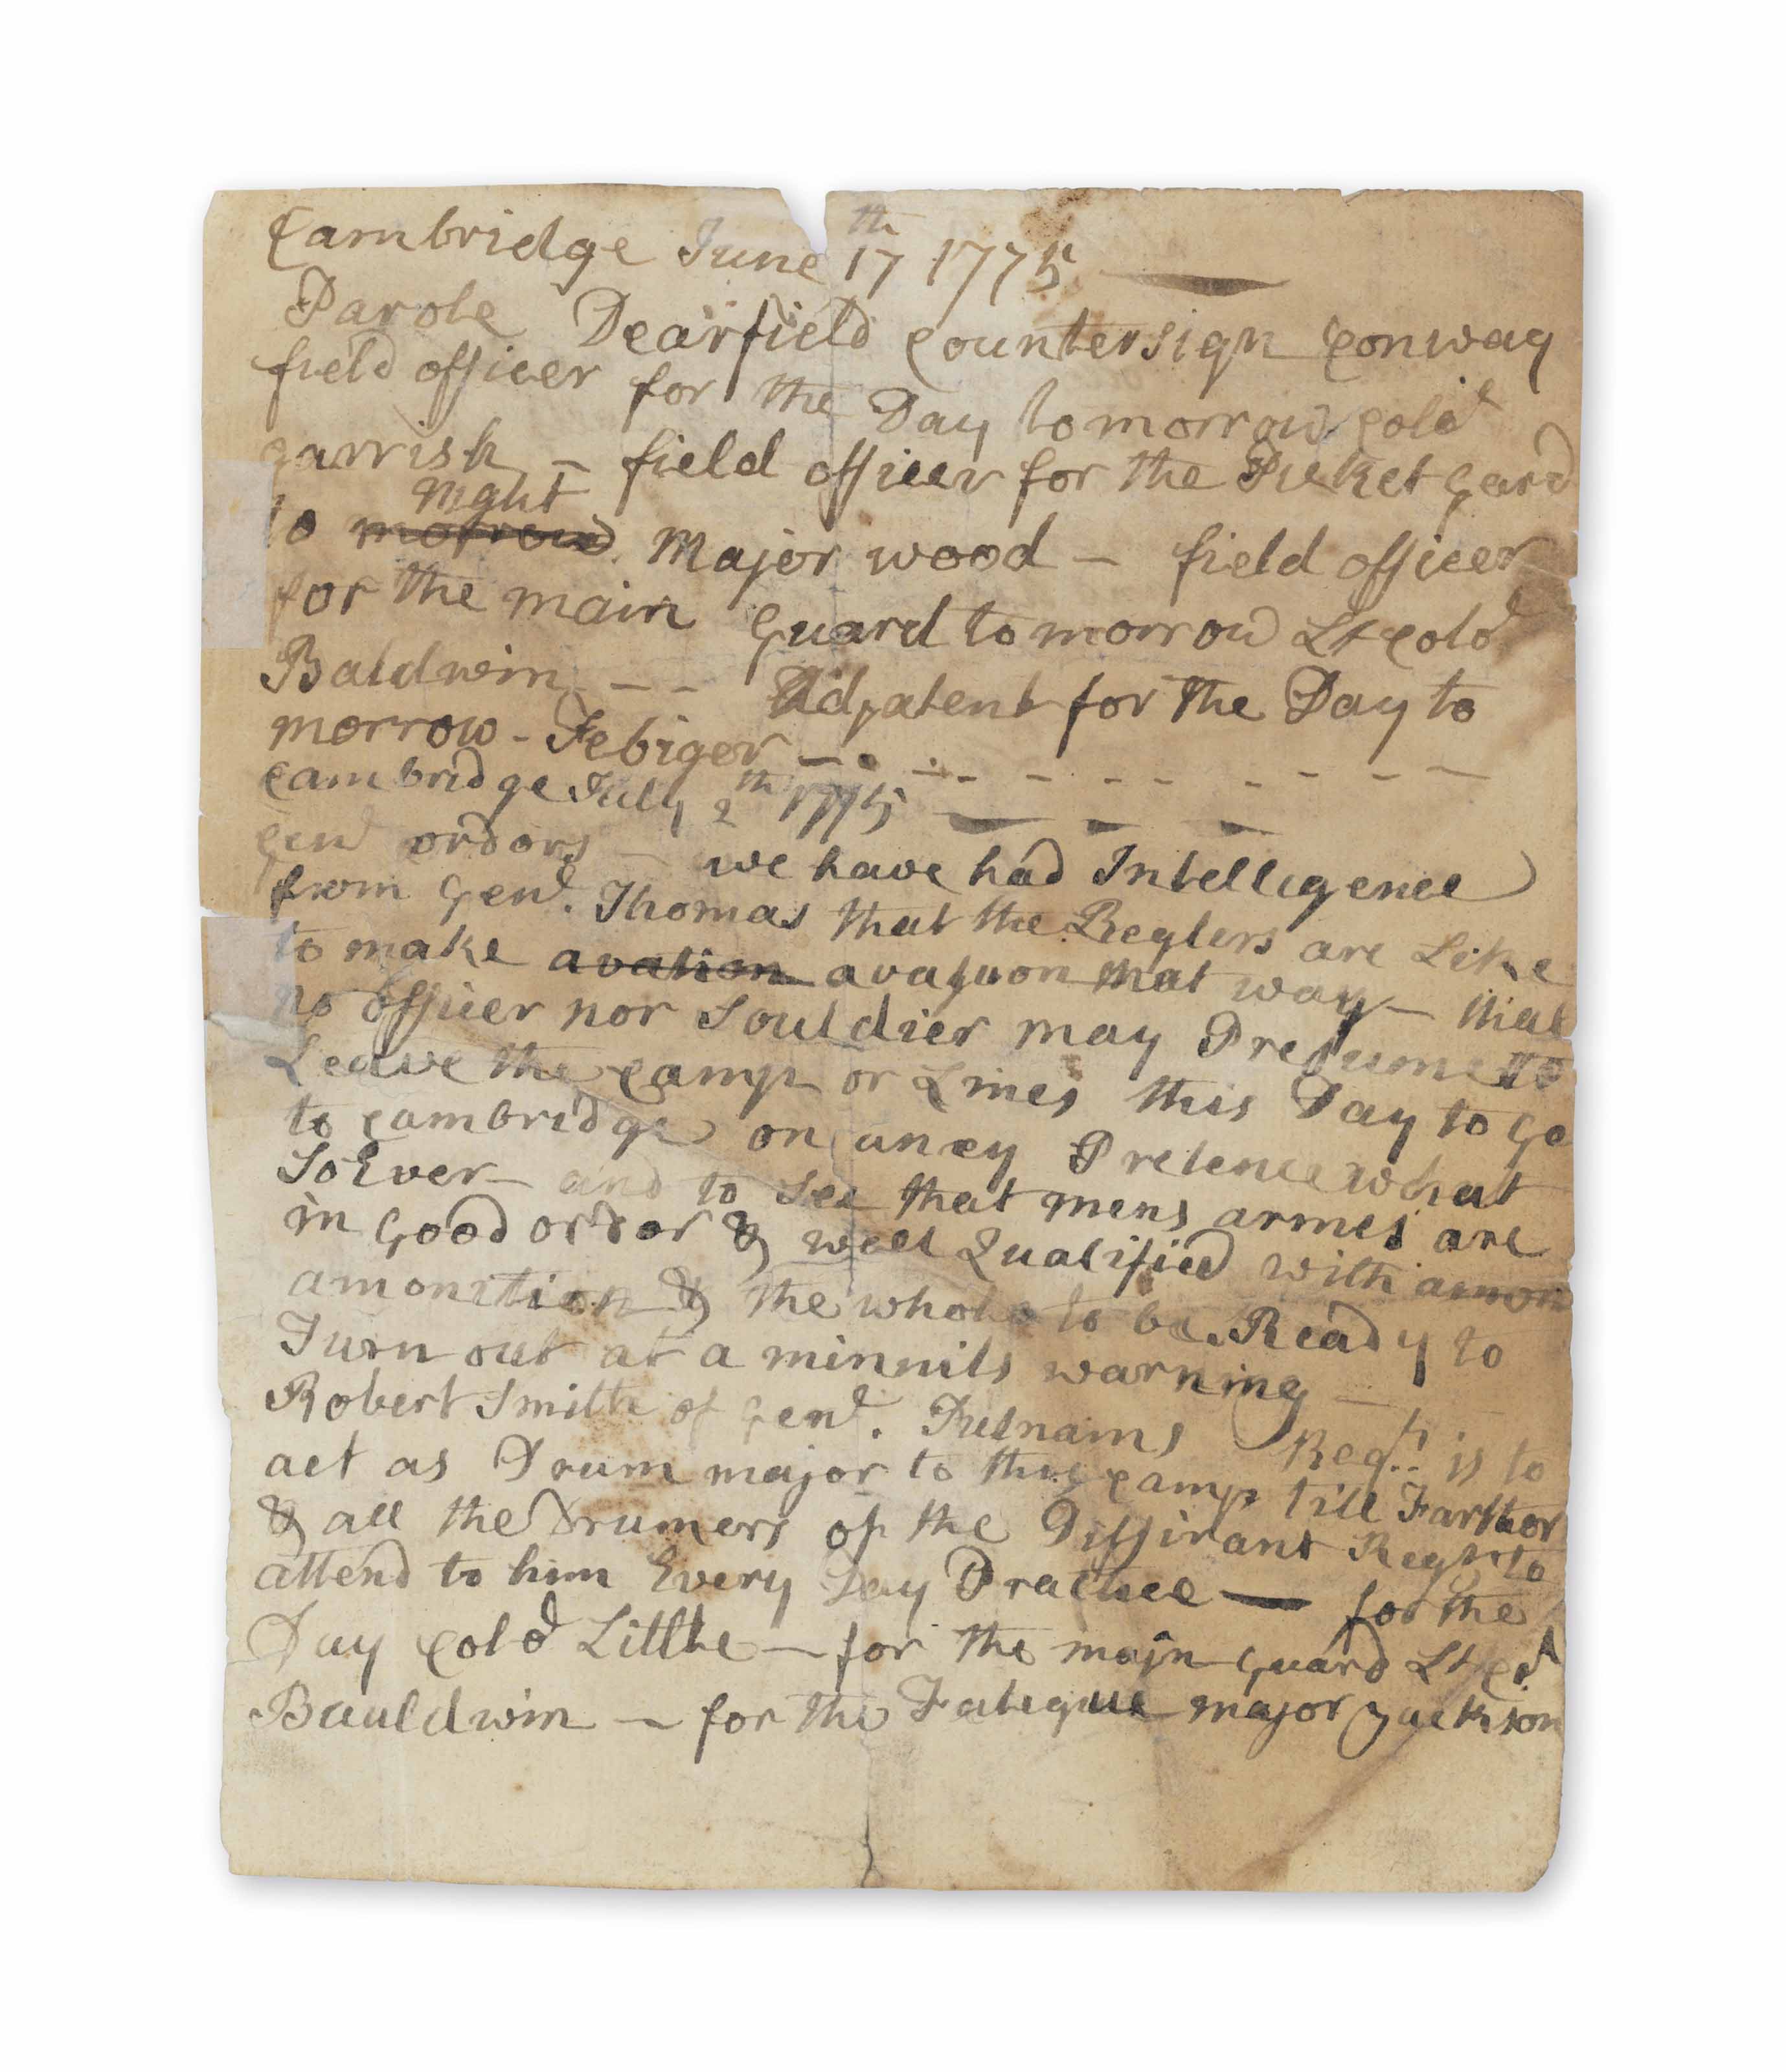 Cambridge June 17th 1775
Parole Dearfield Countersign Conway
field officer for the Day tomorrow Cold
garrish - field officer for the Picket Gard
to night morrow Major wood - field officer
for the main Guard tomorrow Lt Cold
Baldwin - - Adjatent for the Day to
morrow - Febiger - - - - - - - -
Cambridge July 2th 1775
Genl ordors - we have had Intelligence
from Genl. Thomas that the Reglers are Like
to make avation avaquon that way - that
no officer nor Souldier may Presume to
Leave the Camp or Lines this Day to Go
to Cambridge on aney Pretence what
SoEver - and to See that mens armes are
in Good ordor & well Qualified with amon
amonition & the whole to be Ready to
Turn out at a minnits warning -
Robert Smith of Genl. Putnams Regt. is to
act as Drum major to this Camp till Farthor
& all the Drumers of the Diffirant Regts to
attend to him Every Day Practice - for the
Day Cold Little - for the main Guard Lt Cod
Bauldwin - for the Fatigue major Jackson